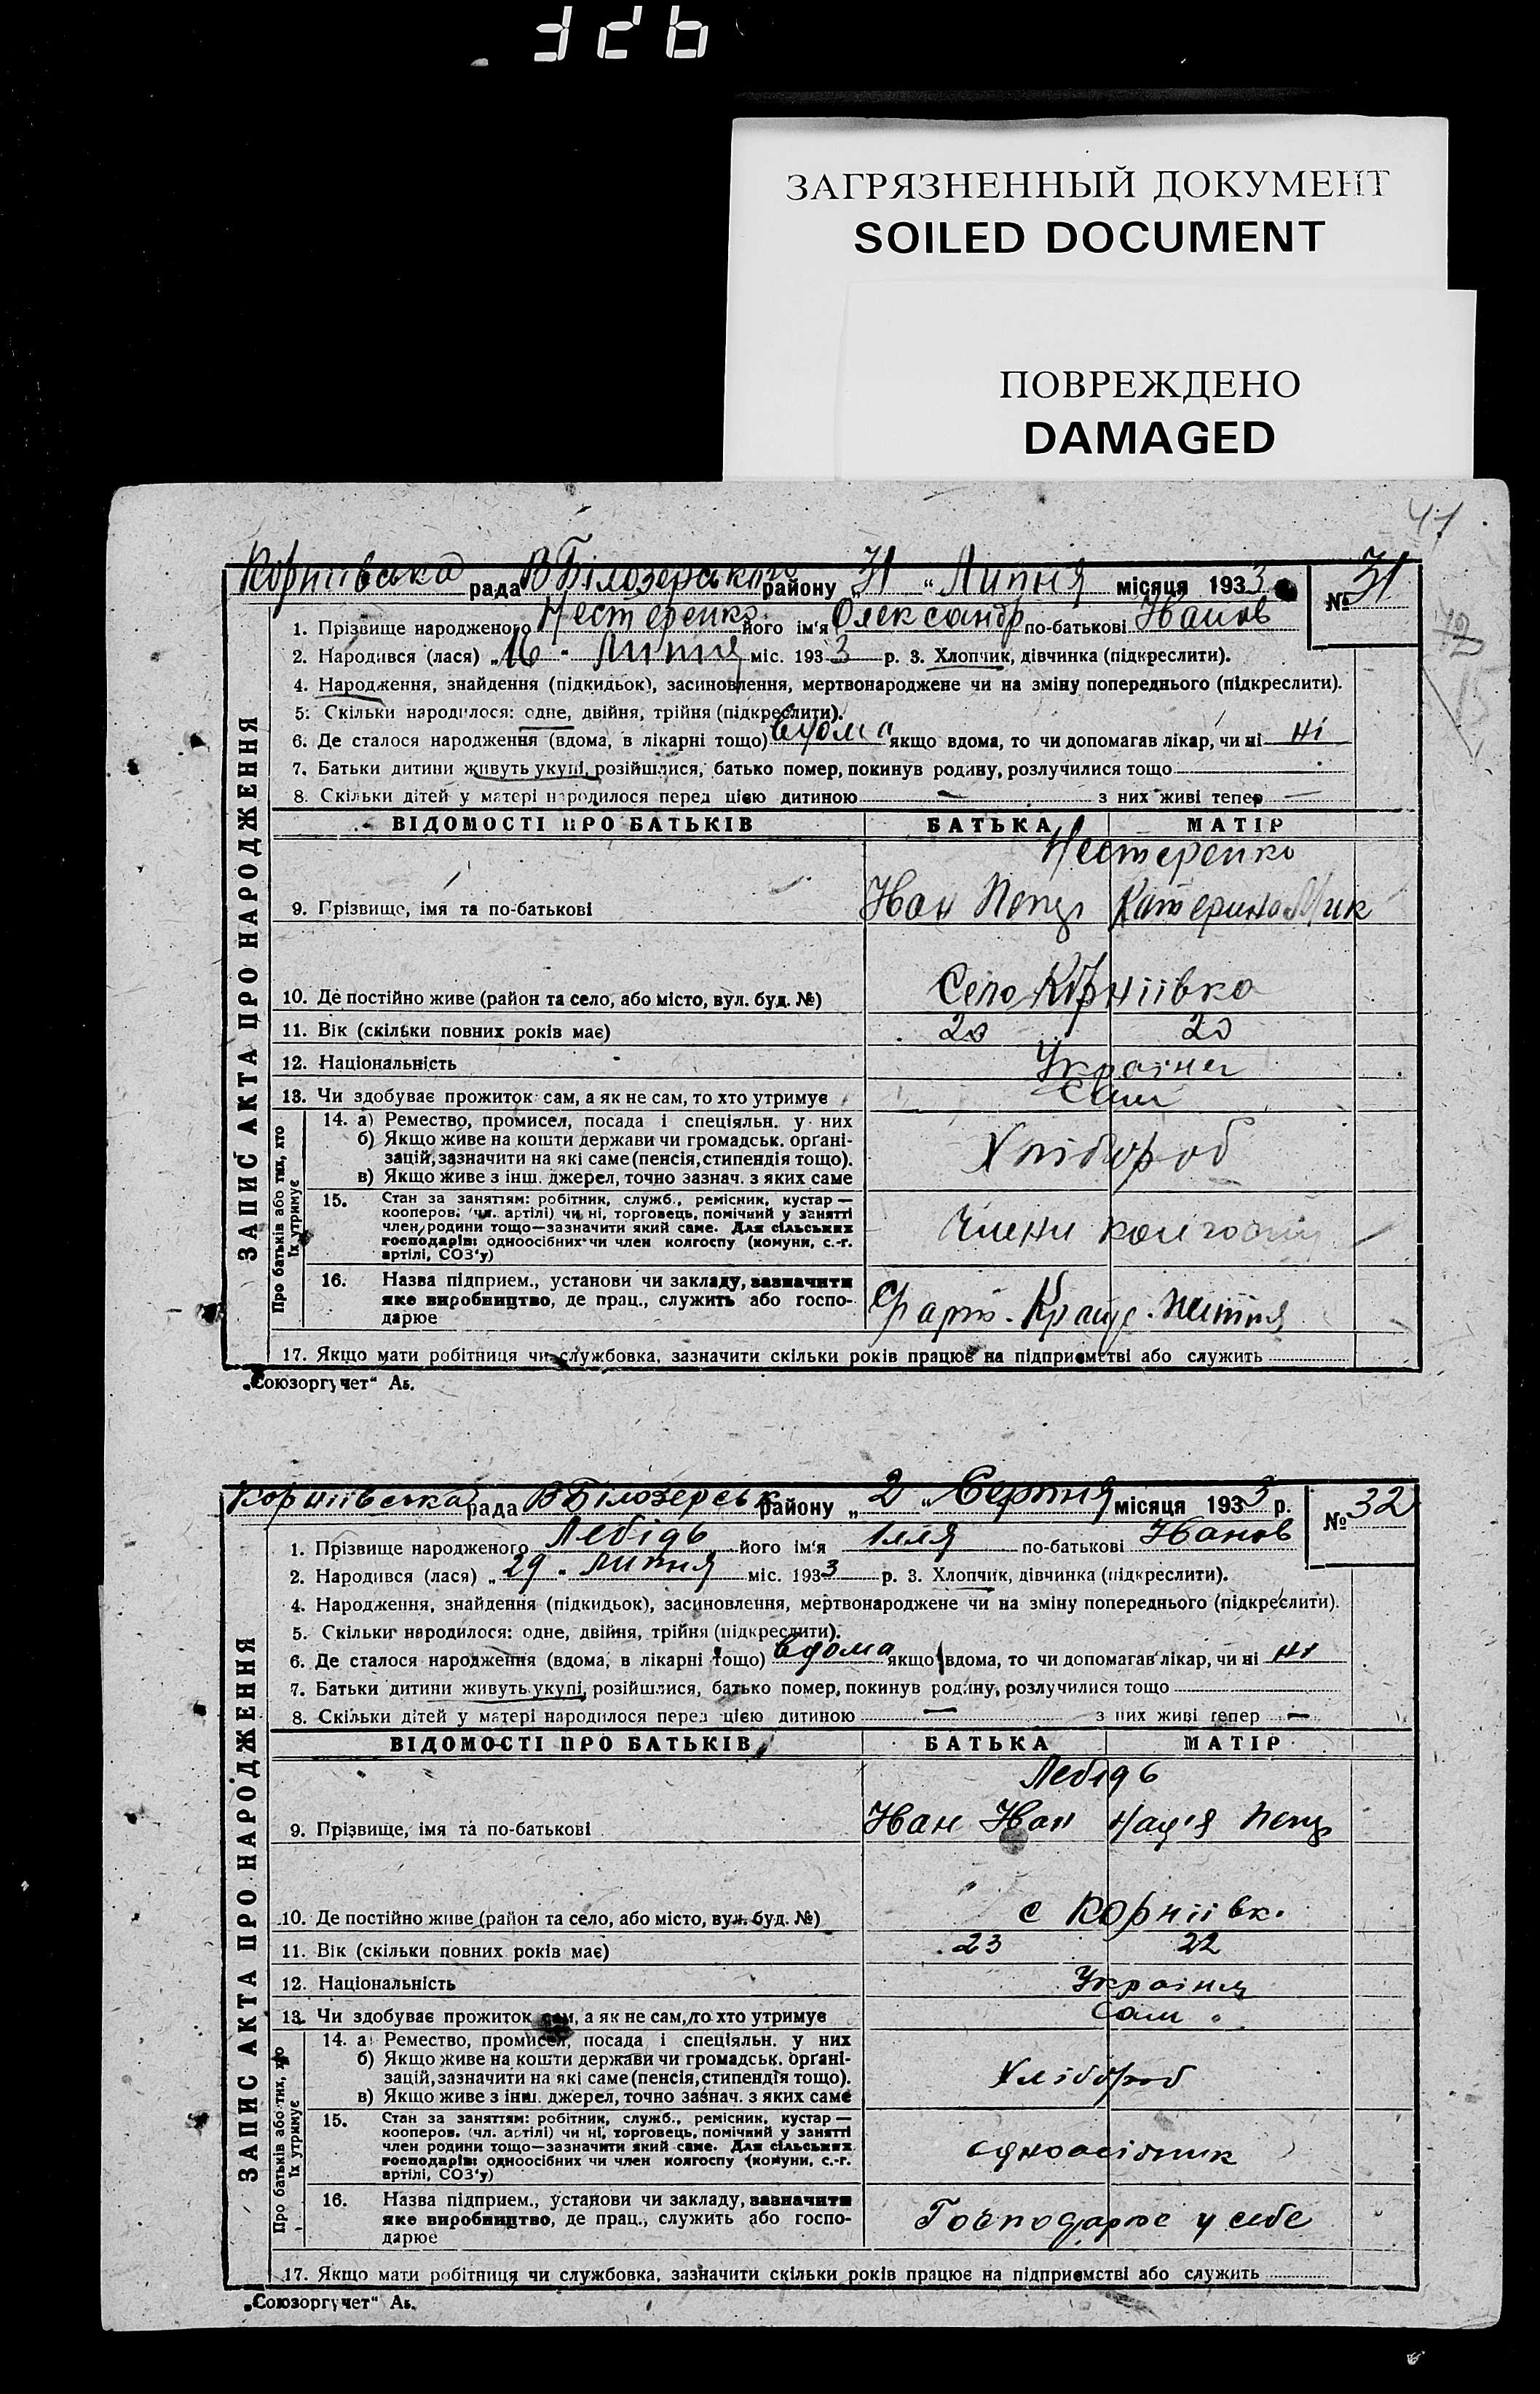 ЗАГРЯЗНЕННЫЙ ДОКУМЕНТ
SOILED DOCUMENT
ПОВРЕЖДЕНО
DAMAGED
41
Корніївська рада В Білозерського району „31“ Липня місяця 1933 № 31
1. Прізвище народженого Нестеренко його ім'я Олександр по-батькові Іванов
2. Народився (лася) „16“ Липня міс. 1933 р. 3. Хлопчик, дівчинка (підкреслити).
4. Народження, знайдення (підкидьок), засиновлення, мертвонароджене чи на зміну попереднього (підкреслити).
5. Скільки народилося: одне, двійня, трійня (підкреслити).
6. Де сталося народження (вдома, в лікарні тощо) вдома якщо вдома, то чи допомагав лікар, чи ні ні
7. Батьки дитини живуть укупі, розійшлися, батько помер, покинув родину, розлучилися тощо
8. Скільки дітей у матері народилося перед цією дитиною — з них живі тепер —
ЗАПИС АКТА ПРО НАРОДЖЕННЯ
ВІДОМОСТІ ПРО БАТЬКІВ БАТЬКА МАТІР
Нестеренко
9. Прізвище, імя та по-батькові Іван Петр Катерина Мик
10. Де постійно живе (район та село, або місто, вул. буд. №) Село Корніївка
11. Вік (скільки повних років має) 20 20
12. Національність Україна
13. Чи здобуває прожиток сам, а як не сам, то хто утримує Сам
Про батьків або тих, хто їх утримує
14. а) Ремество, промисел, посада і спеціяльн. у них
б) Якщо живе на кошти держави чи громадськ. орґані-
зацій, зазначити на які саме (пенсія, стипендія тощо). Хлібороб
в) Якщо живе з інш. джерел, точно зазнач. з яких саме
15. Стан за заняттям: робітник, служб., ремісник, кустар —
кооперов. (чл. артілі) чи ні, торговець, помічний у занятті
член родини тощо—зазначити який саме. Для сільських
господарів: одноосібних чи член колгоспу (комуни, с.-г.
артілі, СОЗ'у)
Члени колгоспу
16. Назва підприєм., установи чи закладу, зазначити
яке виробництво, де прац., служить або госпо-
дарюе
17. Якщо мати робітниця чи службовка, зазначити скільки років працює на підприємстві або служить
„Союзоргучет“ А5.
Корніївська рада В Білозерськ району „2“ Серпня місяця 1933 р. № 32
1. Прізвище народженого Лебідь його ім'я Ілля по-батькові Іванов
2. Народився (лася) „29“ липня міс. 1933 р. 3. Хлопчик, дівчинка (підкреслити).
4. Народження, знайдення (підкидьок), засиновлення, мертвонароджене чи на зміну попереднього (підкреслити).
5. Скільки народилося: одне, двійня, трійня (підкреслити).
6. Де сталося народження (вдома, в лікарні тощо) вдома якщо вдома, то чи допомагав лікар, чи ні ні
7. Батьки дитини живуть укупі, розійшлися, батько помер, покинув родину, розлучилися тощо
8. Скільки дітей у матері народилося перед цією дитиною — з них живі тепер —
ЗАПИС АКТА ПРО НАРОДЖЕННЯ
ВІДОМОСТІ ПРО БАТЬКІВ БАТЬКА МАТІР
Лебідь
9. Прізвище, імя та по-батькові Іван Іван Надія Петр
10. Де постійно живе (район та село, або місто, вул. буд. №) с Корніівк.
11. Вік (скільки повних років має) 23 22
12. Національність Українц
13. Чи здобуває прожиток сам, а як не сам, то хто утримує Сам
Про батьків або тих, хто їх утримує
14. а) Ремество, промисел, посада і спеціяльн. у них
б) Якщо живе на кошти держави чи громадськ. орґані-
зацій, зазначити на які саме (пенсія, стипендія тощо). Хлібороб
в) Якщо живе з інш. джерел, точно зазнач. з яких саме
15. Стан за заняттям: робітник, служб., ремісник, кустар —
кооперов. (чл. артілі) чи ні, торговець, помічний у занятті
член родини тощо—зазначити який саме. Для сільських
господарів: одноосібних чи член колгоспу (комуни, с.-г.
артілі, СОЗ'у)
одноосібник
16. Назва підприєм., установи чи закладу, зазначити
яке виробництво, де прац., служить або госпо-
дарюе
Господарює у себе
17. Якщо мати робітниця чи службовка, зазначити скільки років працює на підприємстві або служить
„Союзоргучет“ А5.